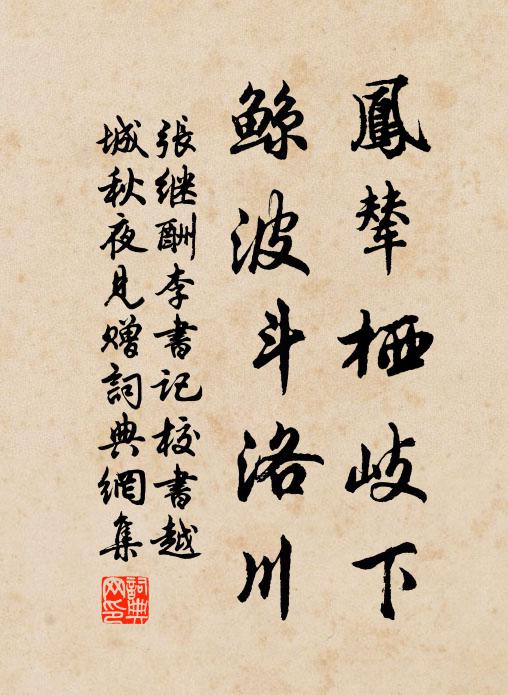 鳳輦栖岐下
鲸波斗洛川
張继酬李書记校書越
城秋夜見贈詞典網集
詞典网印